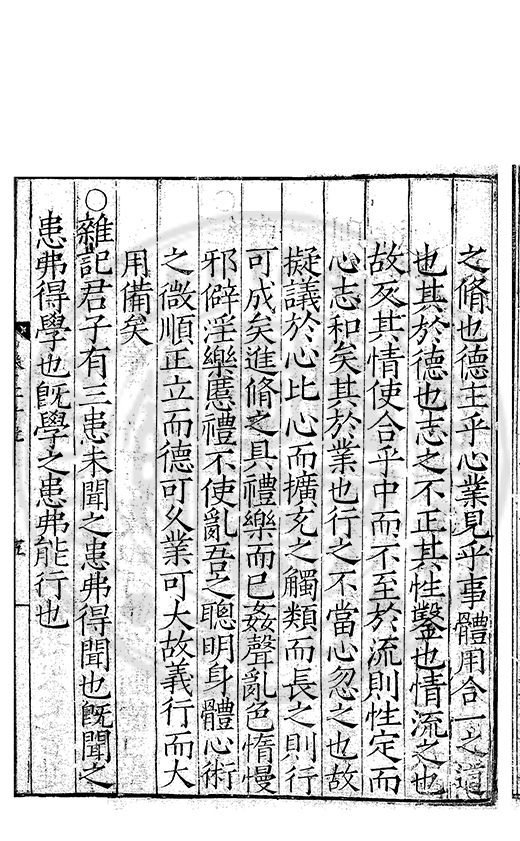 之脩也德主乎心業見乎事體用合一之道
也其於德也志之不正其性鑿也情流之也
故反其情使合乎中而不至於流則性定而
心志和矣其於業也行之不當心忽之也故
擬議於心比心而擴充之觸類而長之則行
可成矣進脩之具禮樂而已姦聲亂色惰慢
邪僻淫樂慝禮不使亂吾之聰明身體心術
之微順正立而德可久業可大故義行而大
用備矣
○雜記君子有三患未聞之患弗得聞也既聞之
患弗得學也既學之患弗能行也